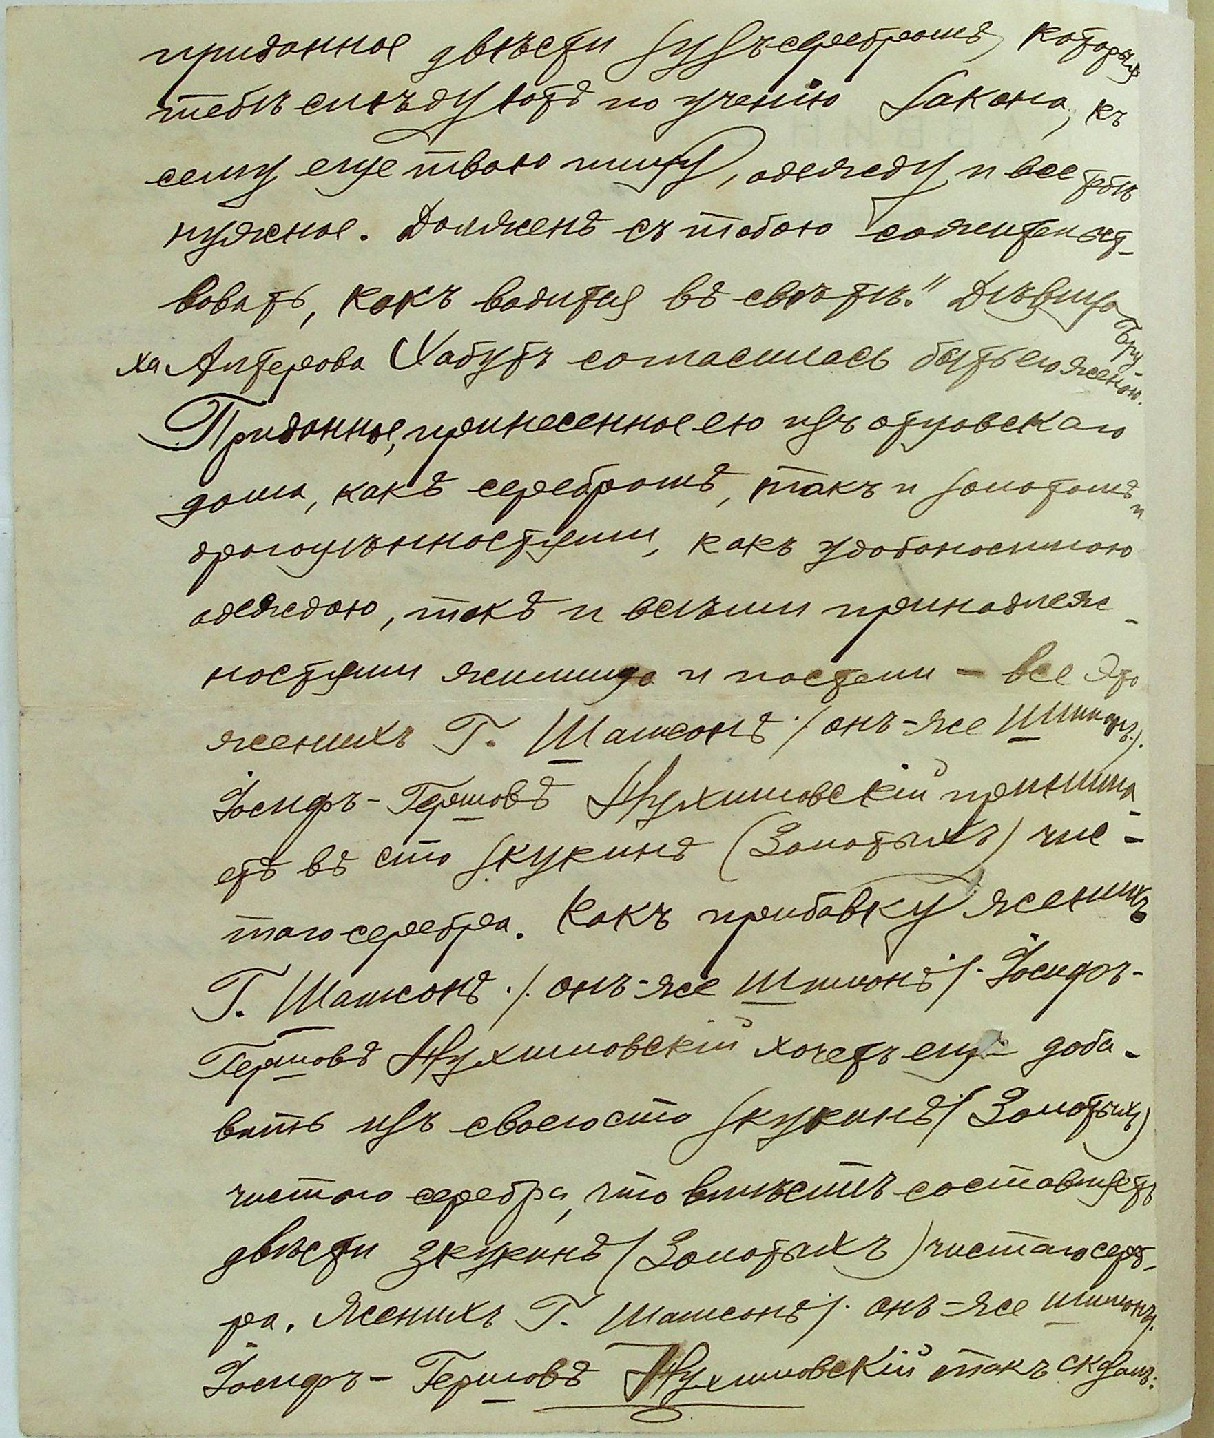 приданное двѣсти зузъ серебромъ, которыя
тебѣ слѣдуютъ по ученію Закона, къ
сему еще твою пищу, одежду и все тебѣ
нужное. Долженъ съ тобою сожительст-
вовать, какъ водится въ свѣтѣ." Дѣвица
ха Алтерова Хабутъ согласилась быть его женою.
Приданное, принесенное ею изъ отцовскаго
дома, какъ серебромъ, такъ и золотомъ и
драгоцѣнностями, какъ удобоносимою
одеждою, такъ и всѣми принадлеж-
ностями жилища и постели – все это
женихъ Г. Шамсонъ /онъ-же Шимонъ/.
Іосифъ-Гершовъ Нухимовскій принима-
етъ въ сто зкукинъ (Золотыхъ) чис-
таго серебра. Какъ прибавку женихъ
Г. Шамсонъ /онъ-же Шимонъ/. Іосифъ-
Гершовъ Нухимовскій хочетъ еще доба-
вить изъ своего сто зкукинъ (Золотыхъ)
чистаго серебра, что вмѣстѣ составляетъ
двѣсти зкукинъ (Золотыхъ) чистаго сереб-
ра. Женихъ Г. Шамсонъ /онъ-же Шимонъ/.
Іосифъ-Гершовъ Нухимовскій такъ сказалъ: